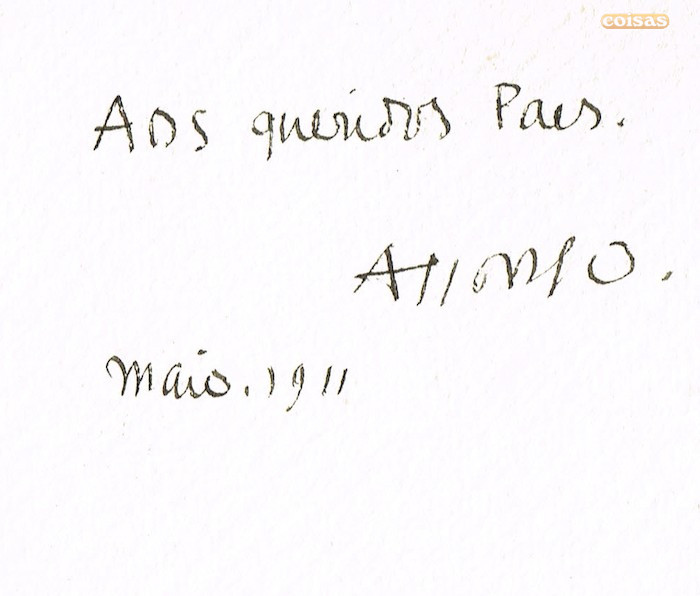 coisas
Aos queridos Paes.
Affonso.
Maio. 1911